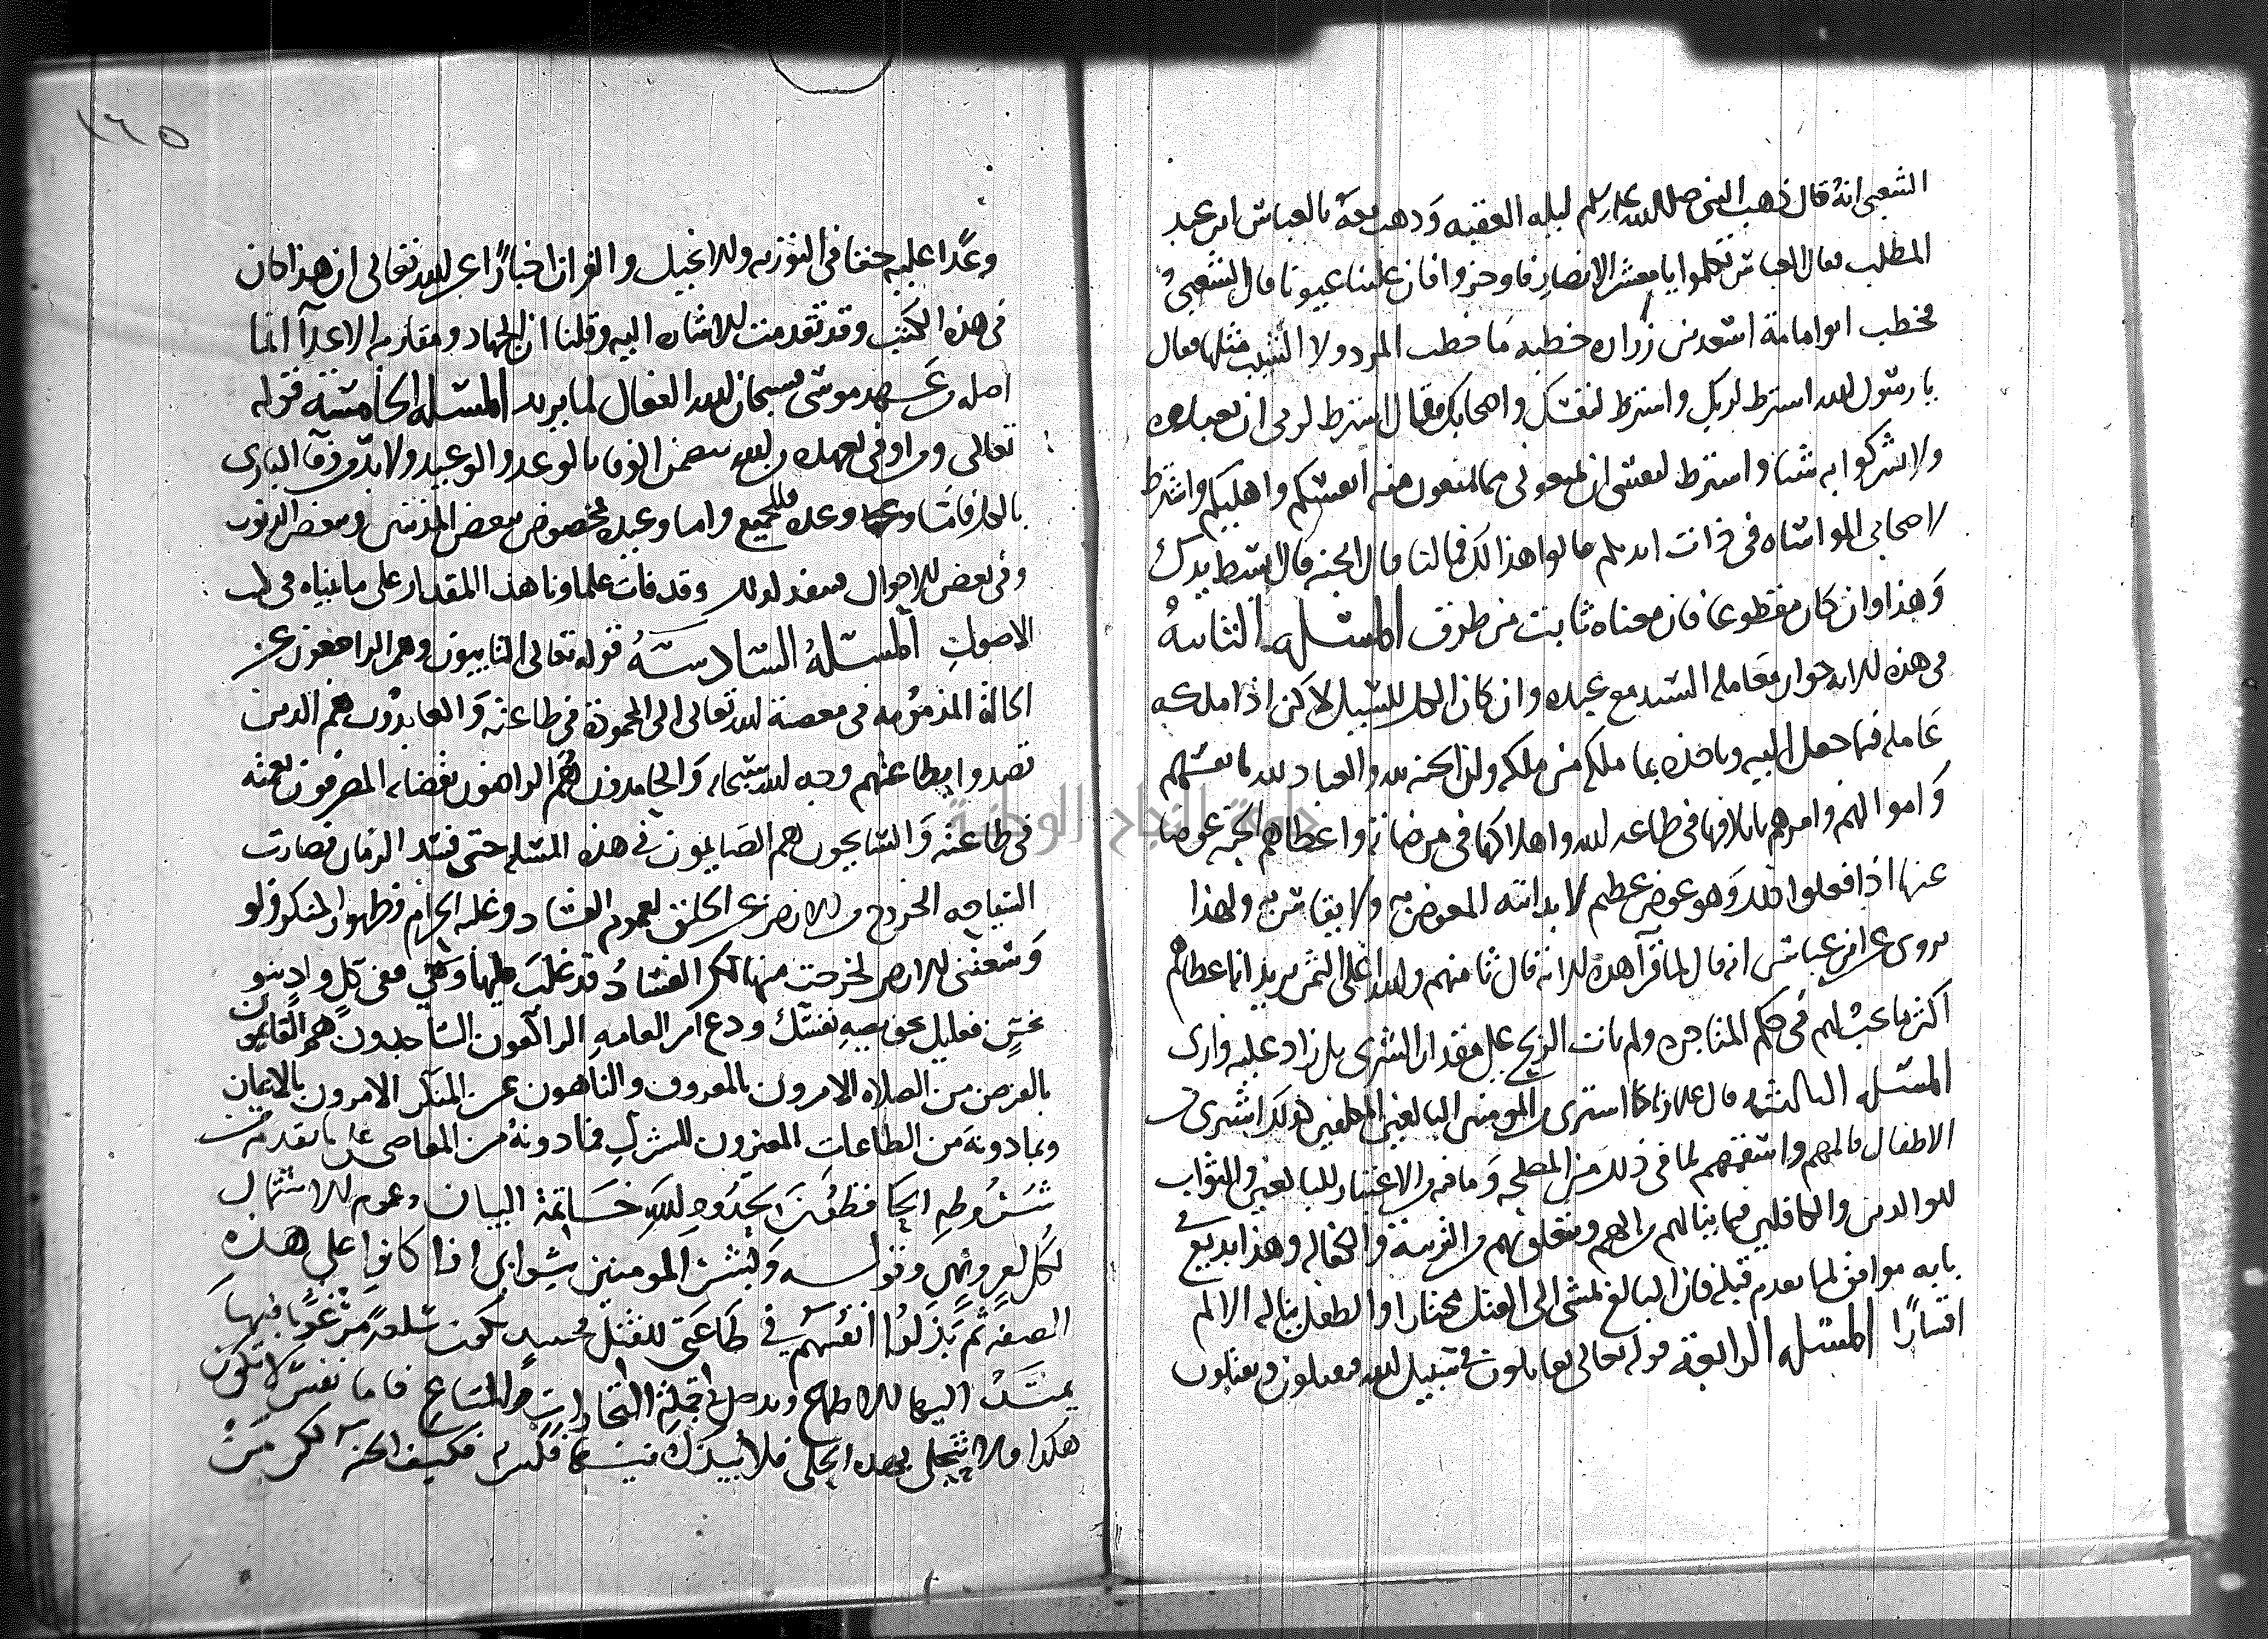 الشعبي انه قال ذهب النبي صلى الله عليه وسلم ليله العقبه وذهب معه بالعباس ابن عبد
المطلب فقال العباس تكلموا يا معشر الانصار فاوجزوا فان علينا عيونا قال الشعبي
فخطب ابو امامة اسعد بن زراره خطبه ما خطب المرد ولا الشيب مثلها فقال
يا رسول الله اشترط لربك واشترط لنفسك واصحابك فقال اشترط لربي ان تعبدوه
ولا تشركوا به شيا واشترط لنفسي ان تمنعوني مما تمنعون منه انفسكم واهليكم واشترط
لاصحابي المواساه في ذات ايديكم قالوا هذا لك فما لنا قال الجنه قال ابسط يدك
وهذا وان كان مقطوعا فان معناه ثابت من طرق المسئله الثانيه
في هذه الايه جواز معامله السيد مع عبده وان كان الكل للسيد لاكن اذا ملكه
عامله فيما جعل اليه وياخذه بما ملكه من ملكه ولان الجنه لله والعباد لله بانفسهم
واموالهم وامرهم باتلافها في طاعه الله واهلاكها في مرضاته واعطاهم الجنه عوضا
عنها اذا فعلوا ذلك وهو عوض عظيم لا يدانيه المعوض به ولا يقاس به ولهذا
يروى عن ابن عباس انه قال لما قرأ هذه الايه قال ثامنهم والله اغلى الثمن يريد انه اعطاهم
اكثر ما يجب لهم في حكم المتاجره ولم يات الربح على مقدار الشرى بل زاد عليه واربى
المسئله الثالثه قال علماؤنا كما اشترى من المومنين البالغين المكلفين كذلك اشترى من
الاطفال فالمهم واسقمهم لما في ذلك من المصلحه وما فيه من الاعتبار للبالغين والثواب
للوالدين والكافلين فيما ينالهم من الهم ويتعلق بهم من التربية والكفاله وهذا بديع في
بابه موافق لما تقدم قبله فان البالغ يمشي الى القتل مختارا والطفل يناله الالم
اقسارا المسئله الرابعة قوله تعالى يقاتلون في سبيل الله فيقتلون ويقتلون
١٦٥
وعدا عليه حقا في التوريه والانجيل والقران اخبارا عن الله تعالى ان هذا كان
في هذه الكتب وقد تقدمت الاشاره اليه وقلنا ان الجهاد ومقاومه الاعدآ انما
اصله من عهد موسى فسبحان الله الفعال لما يريد المسئله الخامسة قوله
تعالى ومن اوفى بعهده من الله يتضمن الوفا بالوعد والوعيد ولا بد من وفآ الباري
بالكل فاما وعده فللجميع واما وعيده فمخصوص ببعض المذنبين وببعض الذنوب
وفي بعض الاحوال فينفذ كذلك وقد فات علماونا هذا المقدار على ما بيناه في كتب
الاصول المسئلة السادسة قوله تعالى التايبون وهم الراجعون عن
الحالة المذمومه في معصية الله تعالى الى المحمودة في طاعته والعابدون هم الذين
قصدوا بطاعتهم وجه الله سبحانه والحامدون هم الراضون بقضائه المصرفون نعمته
في طاعته والسايحون هم الصايمون في هذه المسئله حتى فسد الزمان فصارت
السياحه الخروج من الارض عن الخلق لعموم الفساد وغلبه الحرام وظهور المنكر ولو
وسعتني الارض لخرجت منها لكن الفساد قد غلب عليها ففي كل واد بنو
نحس فعليك بخويصه نفسك ودع امر العامه الراكعون الساجدون هم القايمون
بالفرض من الصلاه الامرون بالمعروف والناهون عن المنكر الامرون بالايمان
وبما دونه من الطاعات المعتزون للشرك فما دونه من المعاصي على ما تقدم من
شروطه الحافظون لحدود الله خاتمة البيان وعموم الاشتمال
لكل امر ونهي وقوله وبشر المومنين بثوابي اذا كانوا على هذه
الصفه ثم بذلوا انفسهم في طاعتي للقتل فحسبك بكون سلعه مرغوبا فيها
يمتد اليها الاطماع ويدخل في جملة التجارات والمتاع فاما نفس لا تكون
هكذا ولا تتحلى بهذه الحلى فلا يبذل فيها فكيف الجنه لكن من